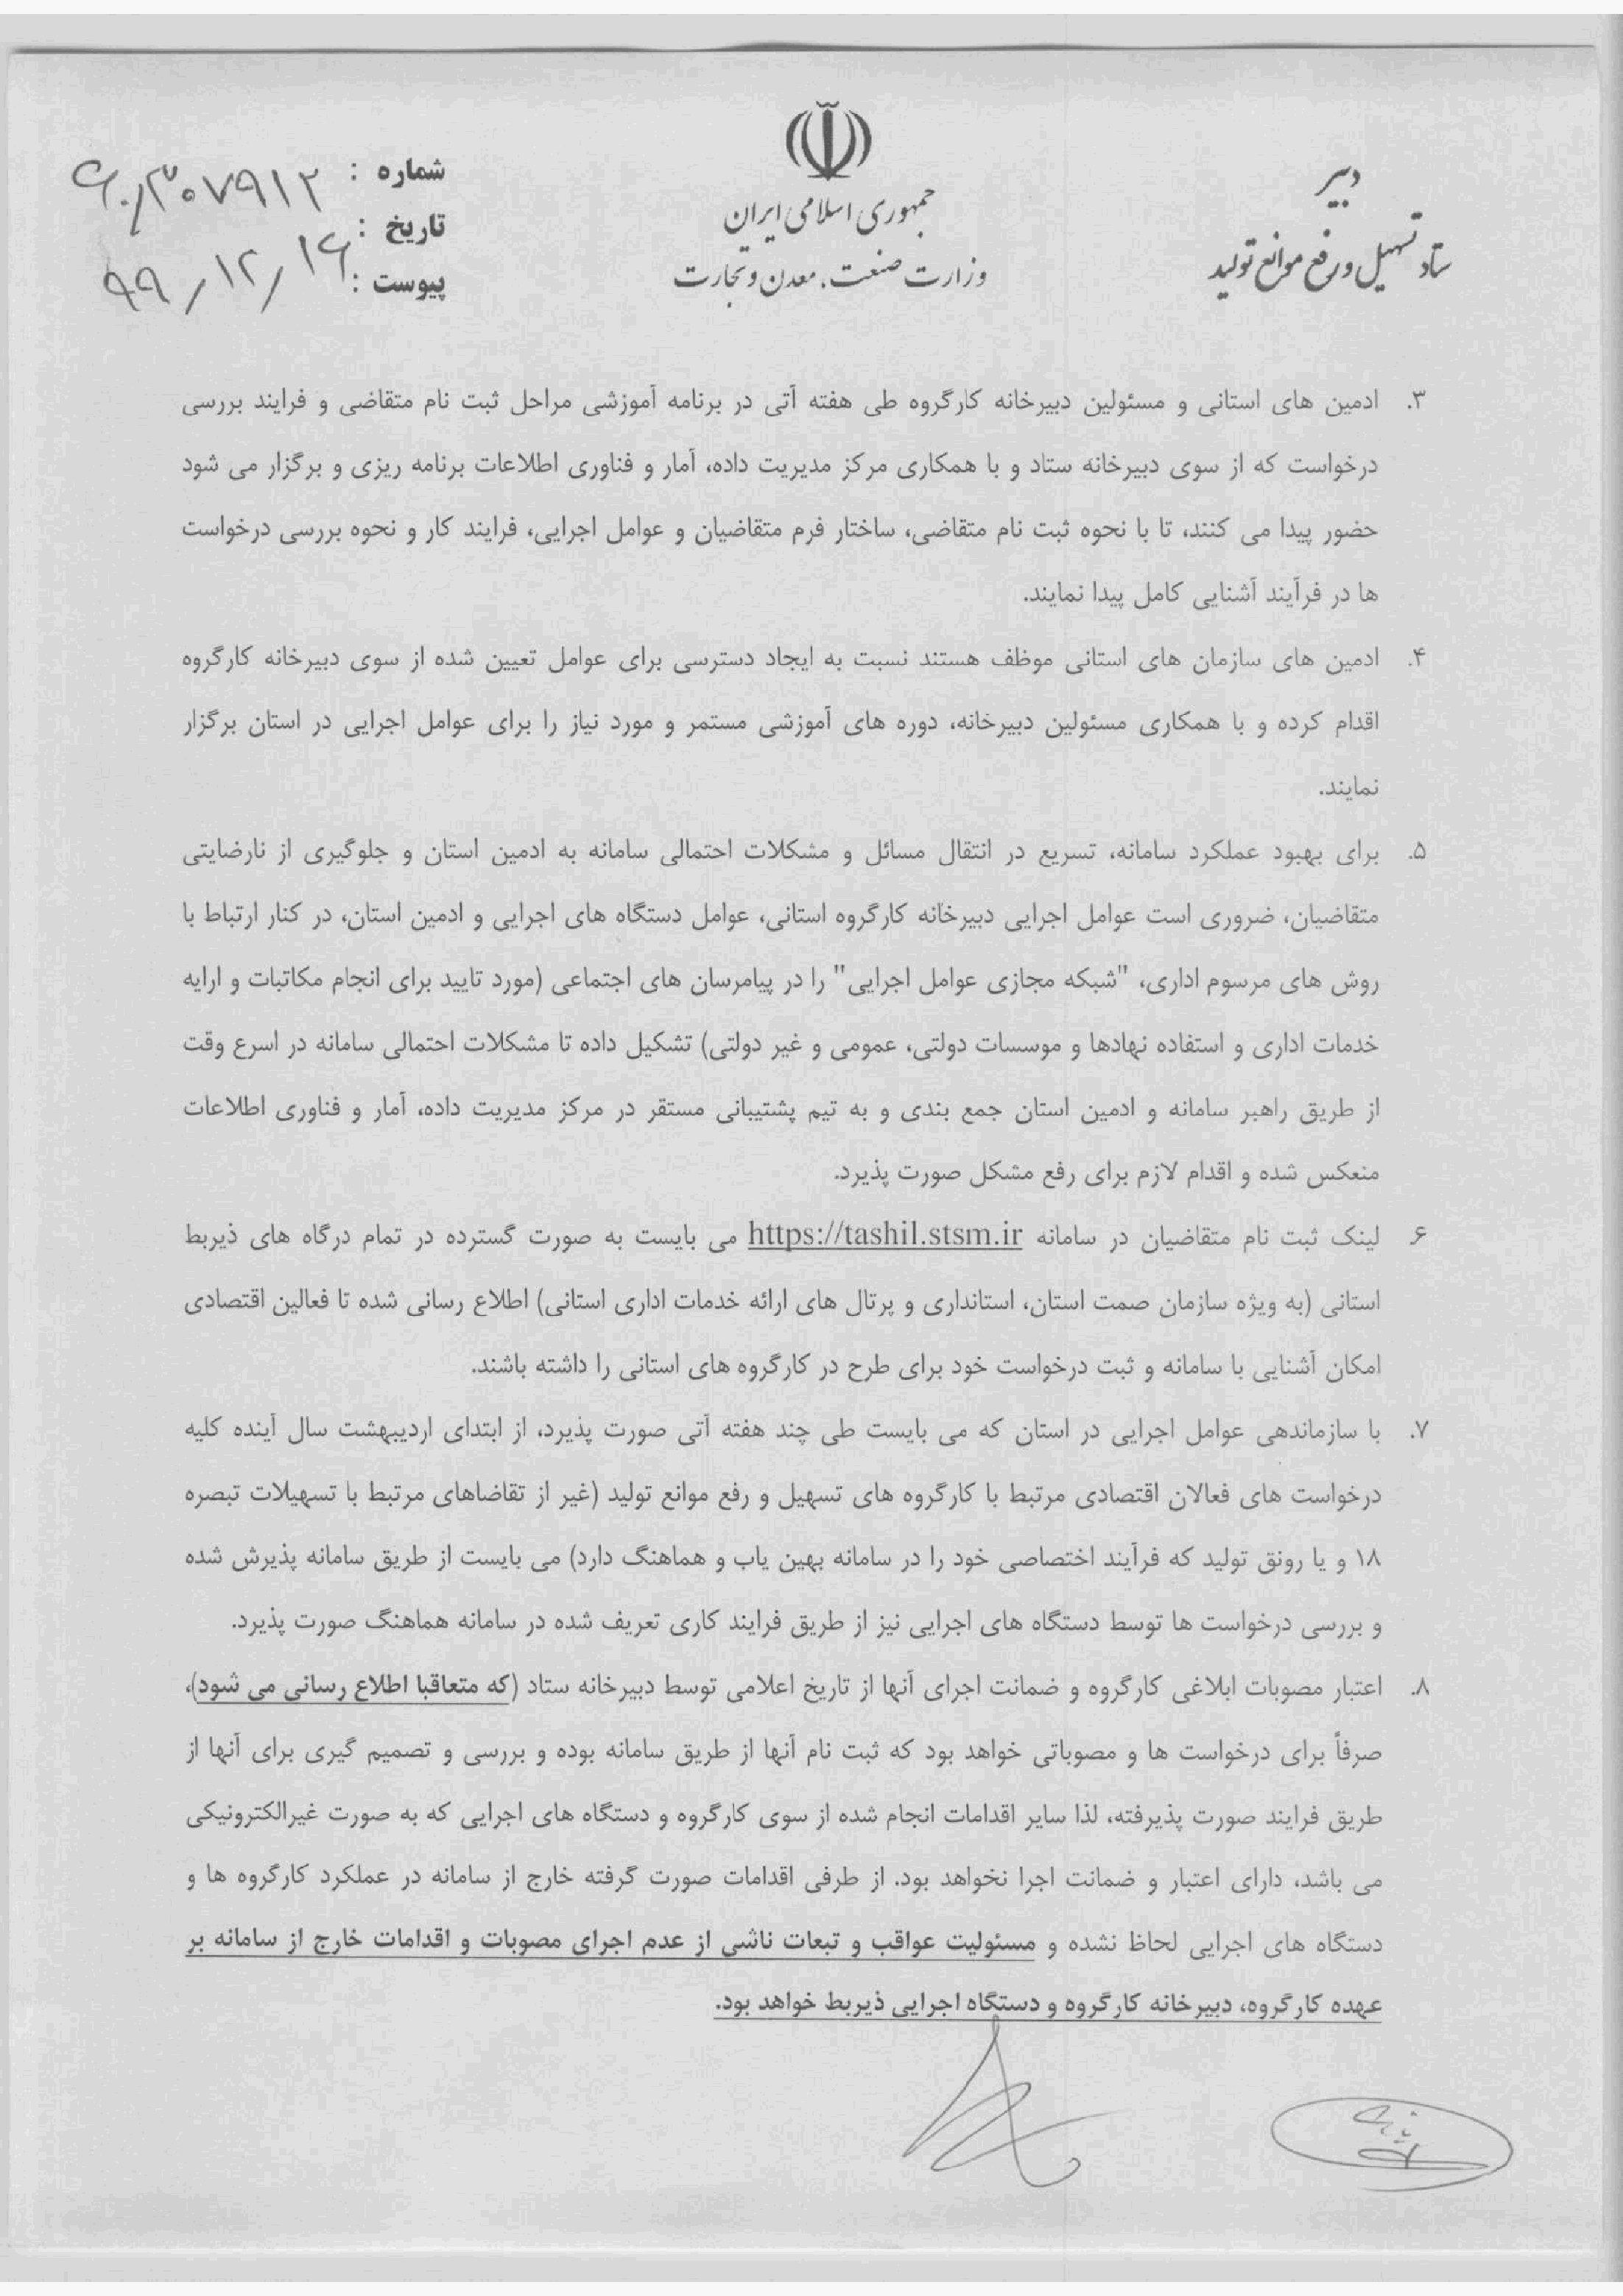 دبیر
ستاد تسهیل و رفع موانع تولید
جمهوری اسلامی ایران
وزارت صنعت، معدن و تجارت
شماره : ۶۰/۳۰۷۹۱۲
تاریخ : ۹۹/۱۲/۱۶
پیوست :
۳. ادمین های استانی و مسئولین دبیرخانه کارگروه طی هفته آتی در برنامه آموزشی مراحل ثبت نام متقاضی و فرایند بررسی
درخواست که از سوی دبیرخانه ستاد و با همکاری مرکز مدیریت داده، آمار و فناوری اطلاعات برنامه ریزی و برگزار می شود
حضور پیدا می کنند، تا با نحوه ثبت نام متقاضی، ساختار فرم متقاضیان و عوامل اجرایی، فرایند کار و نحوه بررسی درخواست
ها در فرآیند آشنایی کامل پیدا نمایند.
۴. ادمین های سازمان های استانی موظف هستند نسبت به ایجاد دسترسی برای عوامل تعیین شده از سوی دبیرخانه کارگروه
اقدام کرده و با همکاری مسئولین دبیرخانه، دوره های آموزشی مستمر و مورد نیاز را برای عوامل اجرایی در استان برگزار
نمایند.
۵. برای بهبود عملکرد سامانه، تسریع در انتقال مسائل و مشکلات احتمالی سامانه به ادمین استان و جلوگیری از نارضایتی
متقاضیان، ضروری است عوامل اجرایی دبیرخانه کارگروه استانی، عوامل دستگاه های اجرایی و ادمین استان، در کنار ارتباط با
روش های مرسوم اداری، "شبکه مجازی عوامل اجرایی" را در پیامرسان های اجتماعی (مورد تایید برای انجام مکاتبات و ارایه
خدمات اداری و استفاده نهادها و موسسات دولتی، عمومی و غیر دولتی) تشکیل داده تا مشکلات احتمالی سامانه در اسرع وقت
از طریق راهبر سامانه و ادمین استان جمع بندی و به تیم پشتیبانی مستقر در مرکز مدیریت داده، آمار و فناوری اطلاعات
منعکس شده و اقدام لازم برای رفع مشکل صورت پذیرد.
۶. لینک ثبت نام متقاضیان در سامانه https://tashil.stsm.ir می بایست به صورت گسترده در تمام درگاه های ذیربط
استانی (به ویژه سازمان صمت استان، استانداری و پرتال های ارائه خدمات اداری استانی) اطلاع رسانی شده تا فعالین اقتصادی
امکان آشنایی با سامانه و ثبت درخواست خود برای طرح در کارگروه های استانی را داشته باشند.
۷. با سازماندهی عوامل اجرایی در استان که می بایست طی چند هفته آتی صورت پذیرد، از ابتدای اردیبهشت سال آینده کلیه
درخواست های فعالان اقتصادی مرتبط با کارگروه های تسهیل و رفع موانع تولید (غیر از تقاضاهای مرتبط با تسهیلات تبصره
۱۸ و یا رونق تولید که فرآیند اختصاصی خود را در سامانه بهین یاب و هماهنگ دارد) می بایست از طریق سامانه پذیرش شده
و بررسی درخواست ها توسط دستگاه های اجرایی نیز از طریق فرایند کاری تعریف شده در سامانه هماهنگ صورت پذیرد.
۸. اعتبار مصوبات ابلاغی کارگروه و ضمانت اجرای آنها از تاریخ اعلامی توسط دبیرخانه ستاد (که متعاقبا اطلاع رسانی می شود)،
صرفاً برای درخواست ها و مصوباتی خواهد بود که ثبت نام آنها از طریق سامانه بوده و بررسی و تصمیم گیری برای آنها از
طریق فرایند صورت پذیرفته، لذا سایر اقدامات انجام شده از سوی کارگروه و دستگاه های اجرایی که به صورت غیرالکترونیکی
می باشد، دارای اعتبار و ضمانت اجرا نخواهد بود. از طرفی اقدامات صورت گرفته خارج از سامانه در عملکرد کارگروه ها و
دستگاه های اجرایی لحاظ نشده و مسئولیت عواقب و تبعات ناشی از عدم اجرای مصوبات و اقدامات خارج از سامانه بر
عهده کارگروه، دبیرخانه کارگروه و دستگاه اجرایی ذیربط خواهد بود.